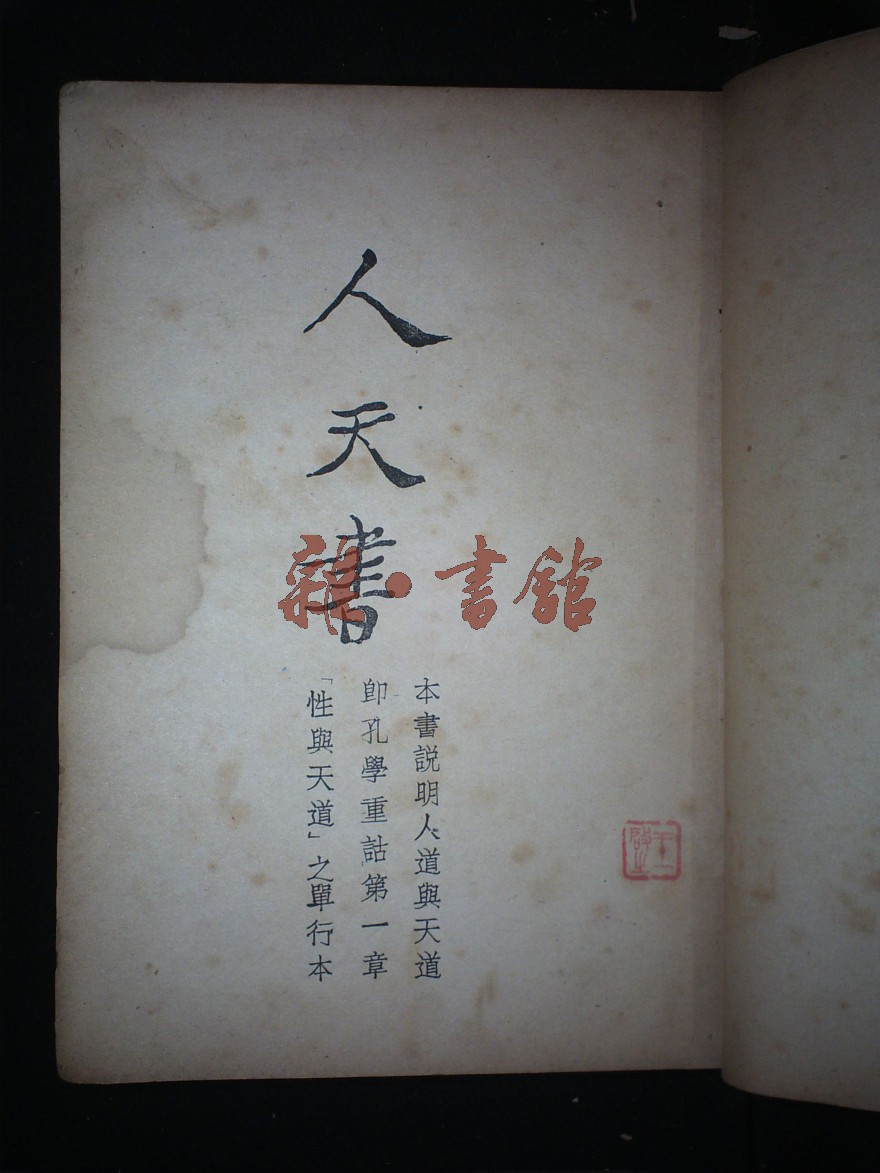 人天書
本書説明人道與天道
即孔學重詁第一章
「性與天道」之單行本
雜·書館